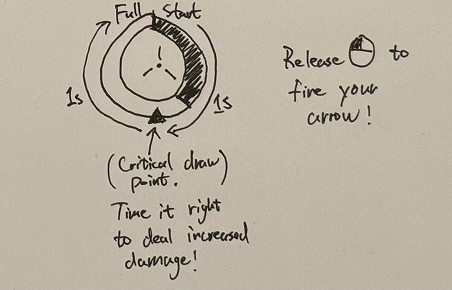 Full Start
1s
1s
(Critical draw
point.)
Time it right
to deal increased
damage!
Release to
fire your
arrow!